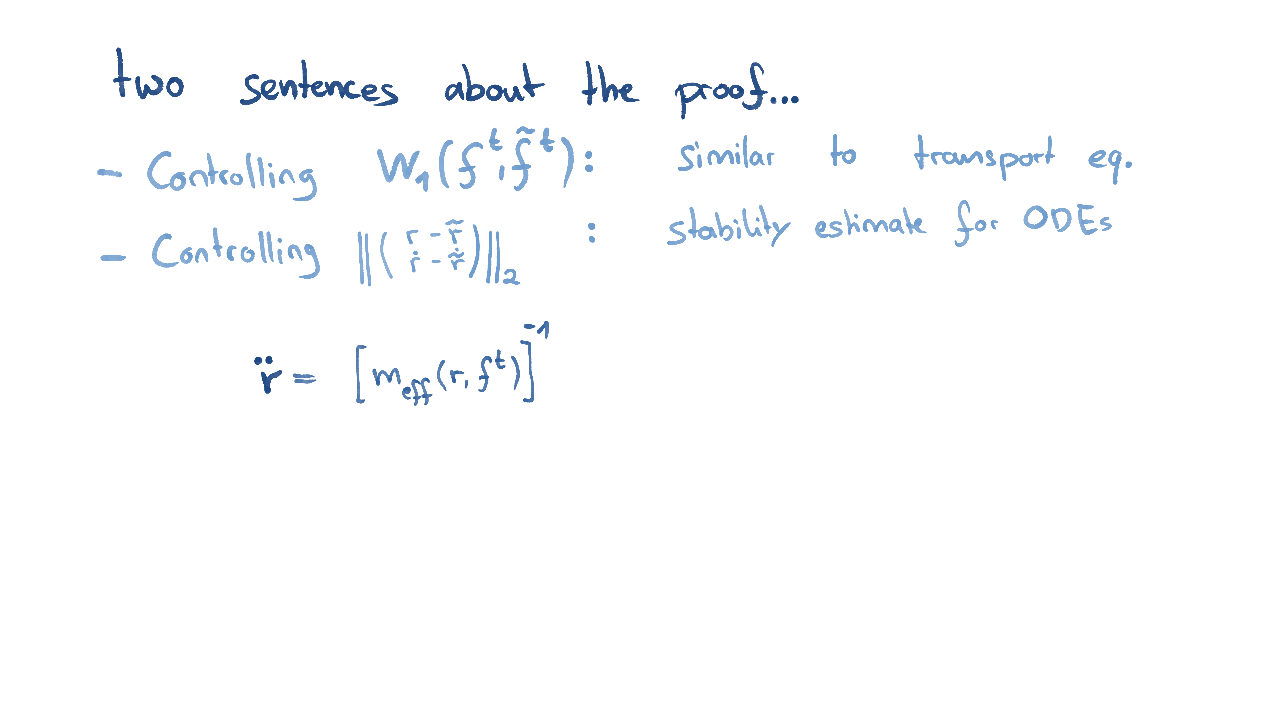 two sentences about the proof...
- Controlling W₁(fᵗ, f̃ᵗ): similar to transport eq.
- Controlling ‖(r - r̃ ṙ - ṙ̃)‖₂ : stability estimate for ODEs
r̈ = [m_eff(r, fᵗ)]⁻¹